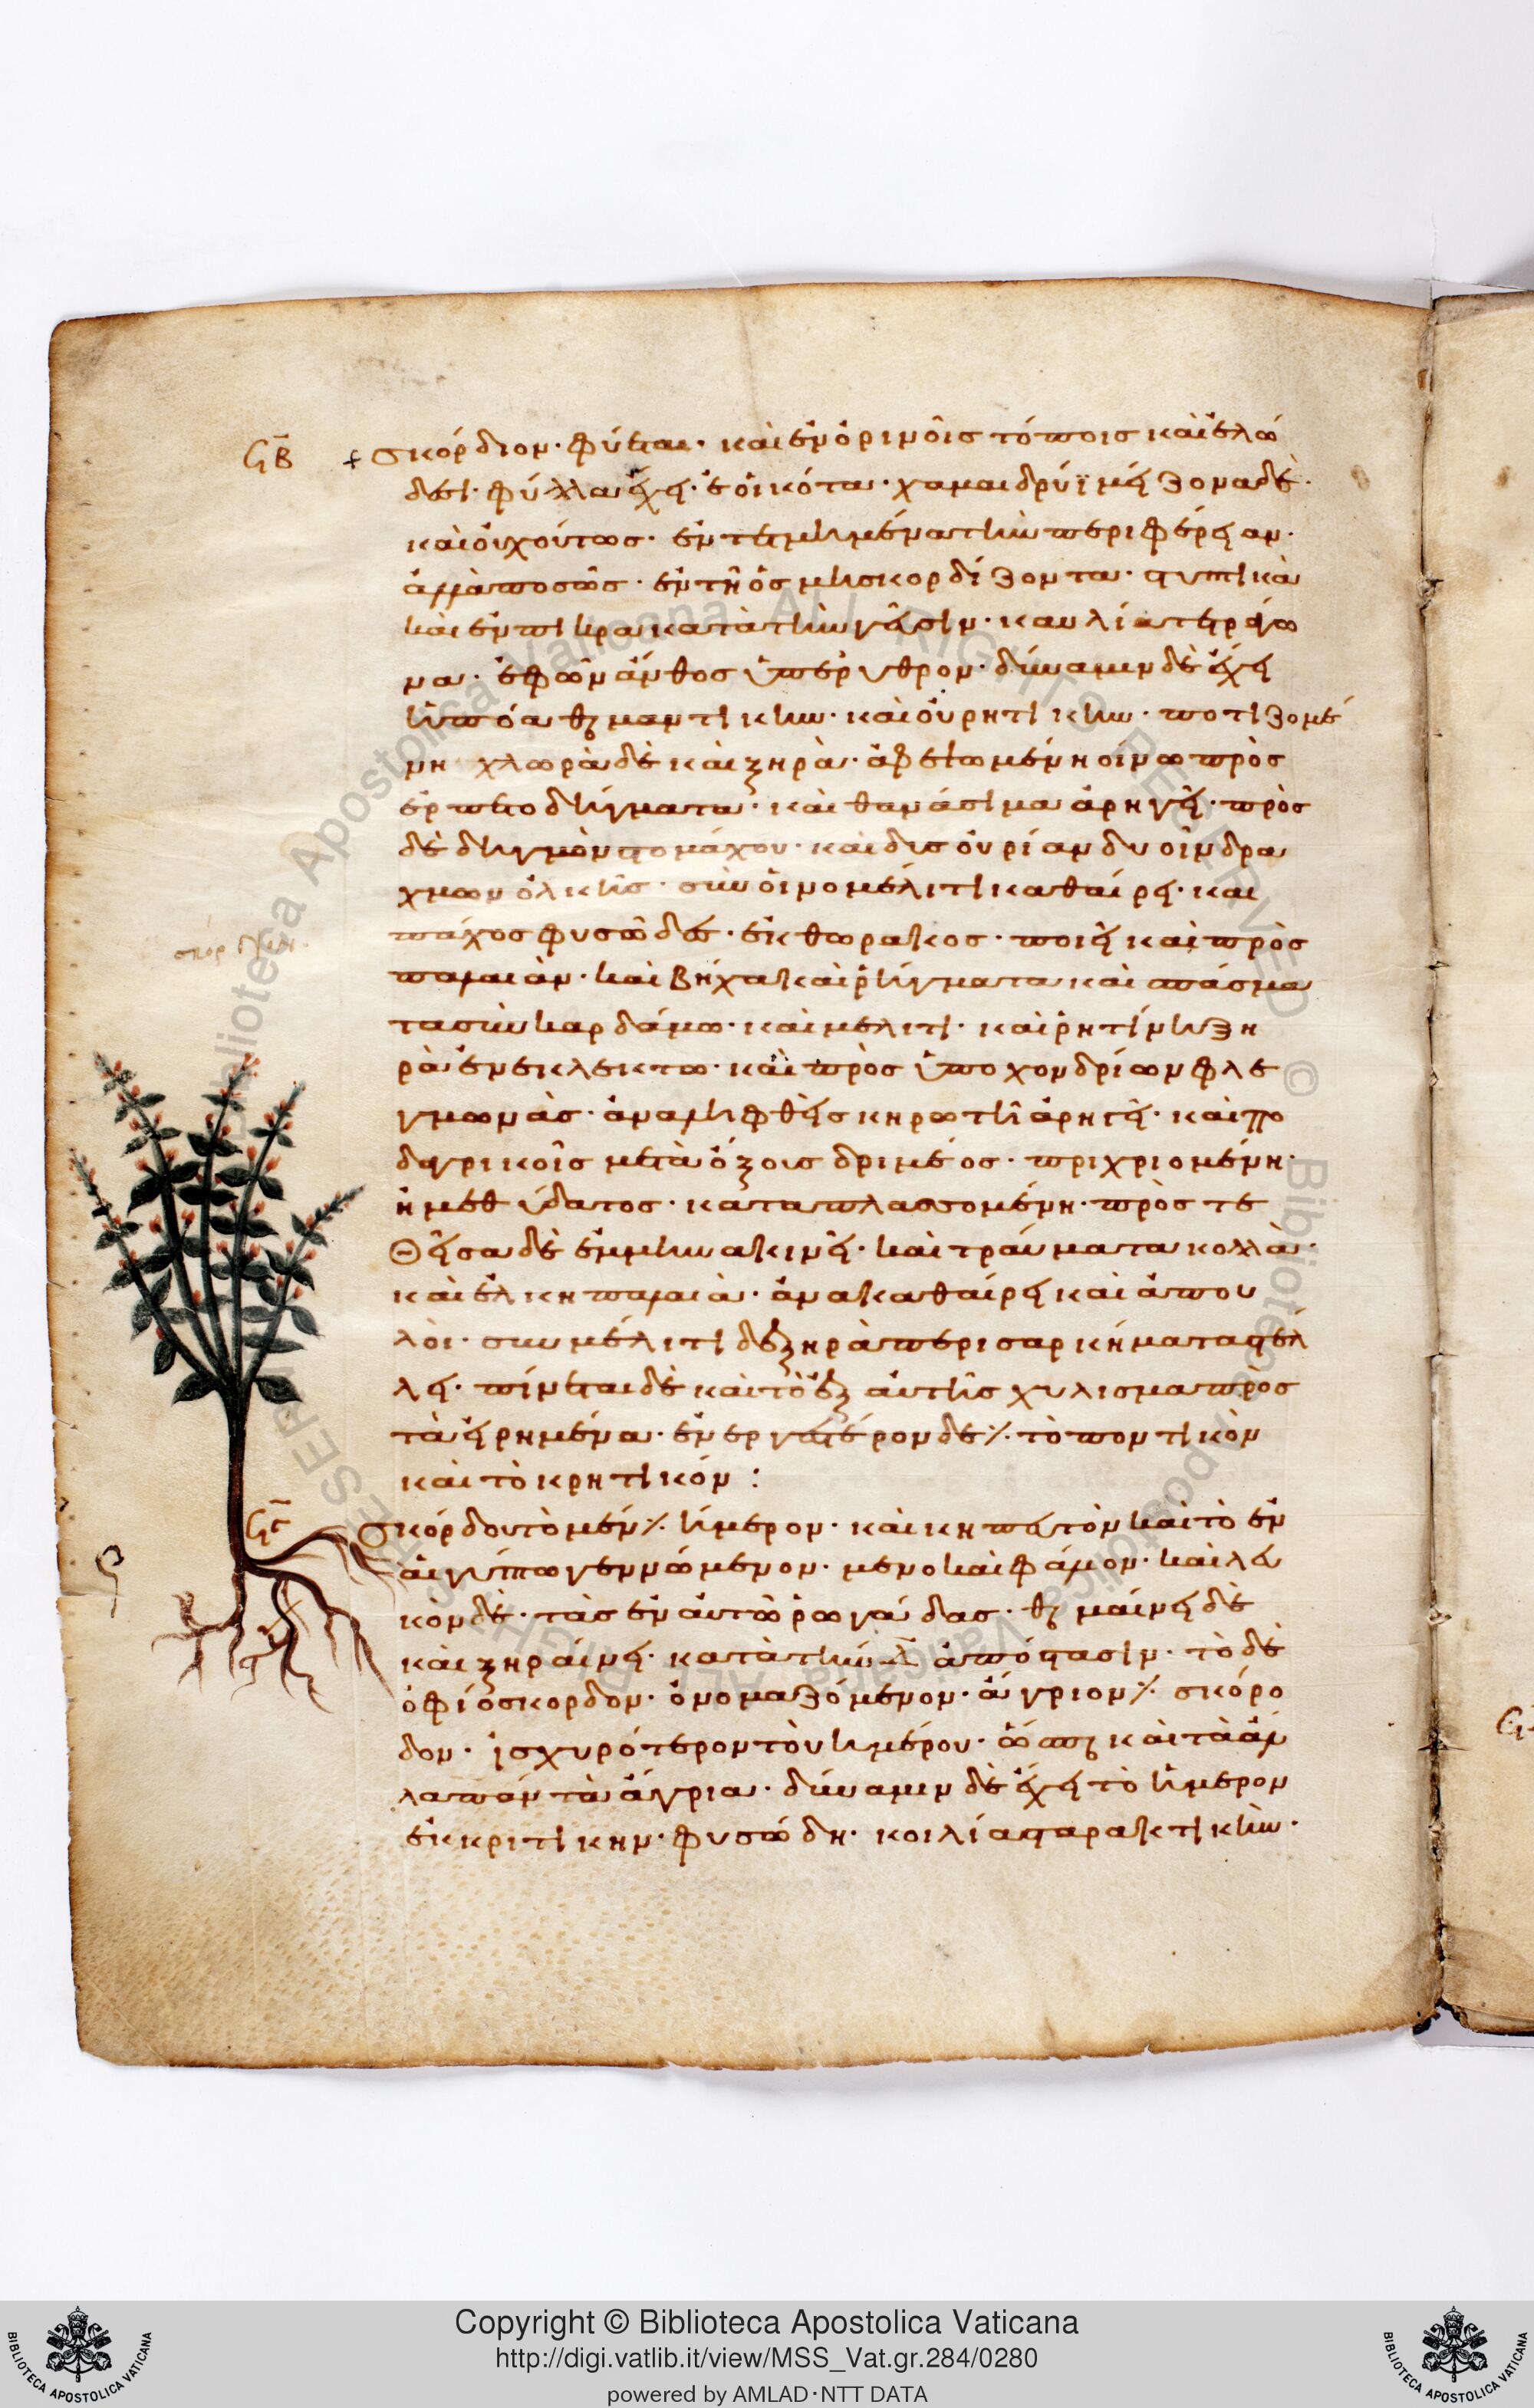 ϟβ
+ σκόρδιον· φύεται· καὶ ἐν ὀρινοῖς τόποις καὶ ἑλώ
δεσι· φύλλα ἔχει· ἐοικότα· χαμαιδρύϊ μείζονα δὲ·
καὶ οὐχ οὕτως· ἐντετμημένα τὴν περιφέρειαν·
ἀλλὰ ποσῶς· ἐν τῆ ὀσμῆ σκορδίζοντα· στυπτικὰ
καὶ ἔμπικρα κατὰ τὴν γεῦσιν· καυλία τετράγω
να· ἐφ ὧν ἄνθος ὑπέρυθρον· δύναμιν δὲ ἔχει
ἡ πόα θερμαντικὴν· καὶ οὐρητικὴν· ποτιζομέ
νη χλωρὰ δὲ καὶ ξηρὰ· ἀφεψωμένη οἴνω πρὸς
ἑρπετοδήγματα· καὶ θανάσιμα ἀρήγει· πρὸς
δὲ δηγμὸν στομάχου· καὶ δυσουρίαν δυοῖν δρα
χμῶν ὁλκῆς· σὺν οἰνομέλιτι καθαίρει· και
πάχος φυσῶδες· ἐκ θώρακος· ποιεῖ καὶ πρὸς
παλαιὰν· καὶ βῆχα καὶ ῥήγματα καὶ σπάσμα
τα σὺν καρδάμω· καὶ μέλιτι· καὶ ῥητίνη ξη
ρὰ ἐν ἐκλεκτω· καὶ πρὸς ὑποχονδρίων φλε
γμωνὰς· ἀναληφθεῖσ κηρωτῆ ἀρήγει· καὶ πο
δαγρικοῖς μετὰ ὄξους δριμέος· περιχριομένη·
ἢ μεθ ὕδατος· καταπλασσομένη· προστε
θεῖσα δὲ ἔμμηνα κινεῖ· καὶ τραύματα κολλᾶ·
καὶ ἕλκη παλαιὰ· ἀνακαθαίρει καὶ ἀπου
λοῖ· σὺν μέλιτι δὲ ξηρὰ περισαρκήματα στέλ
λει· πίνεται δὲ καὶ τὸ ἐξ αὐτῆς χύλισμα πρὸς
τὰ εἰρημένα· ἐνεργέστερον δὲ ⁒ τὸ ποντικὸν
καὶ τὸ κρητικόν :
σκόρδον τὸ μέν ⁒ ἥμερον· καὶ κηπευτὸν καὶ τὸ ἐν
αἰγύπτω γεννώμενον· μενοκαι φάμον· καὶ λευ
κὸν δὲ· τὰς ἐν αὐτῶ ῥωγάδας· θερμαίνει δὲ
καὶ ξηραίνει· κατὰ τὴν ἀπόστασιν· τὸ δὲ
ὀφιόσκορδον· ὀνομαζόμενον· ἄγριον ⁒ σκόρο
δον· ἰσχυρότερον τοῦ ἡμέρου· ὥσπερ καὶ τὰ ἄλ
λα πάντα ἄγρια· δύναμιν δὲ ἔχει τὸ ἥμερον
ἐκκριτικην· φυσώδη· κοιλίας ταρακτικὴν·
Copyright © Biblioteca Apostolica Vaticana
http://digi.vatlib.it/view/MSS_Vat.gr.284/0280
powered by AMLAD·NTT DATA
BIBLIOTECA APOSTOLICA VATICANA
BIBLIOTECA APOSTOLICA VATICANA